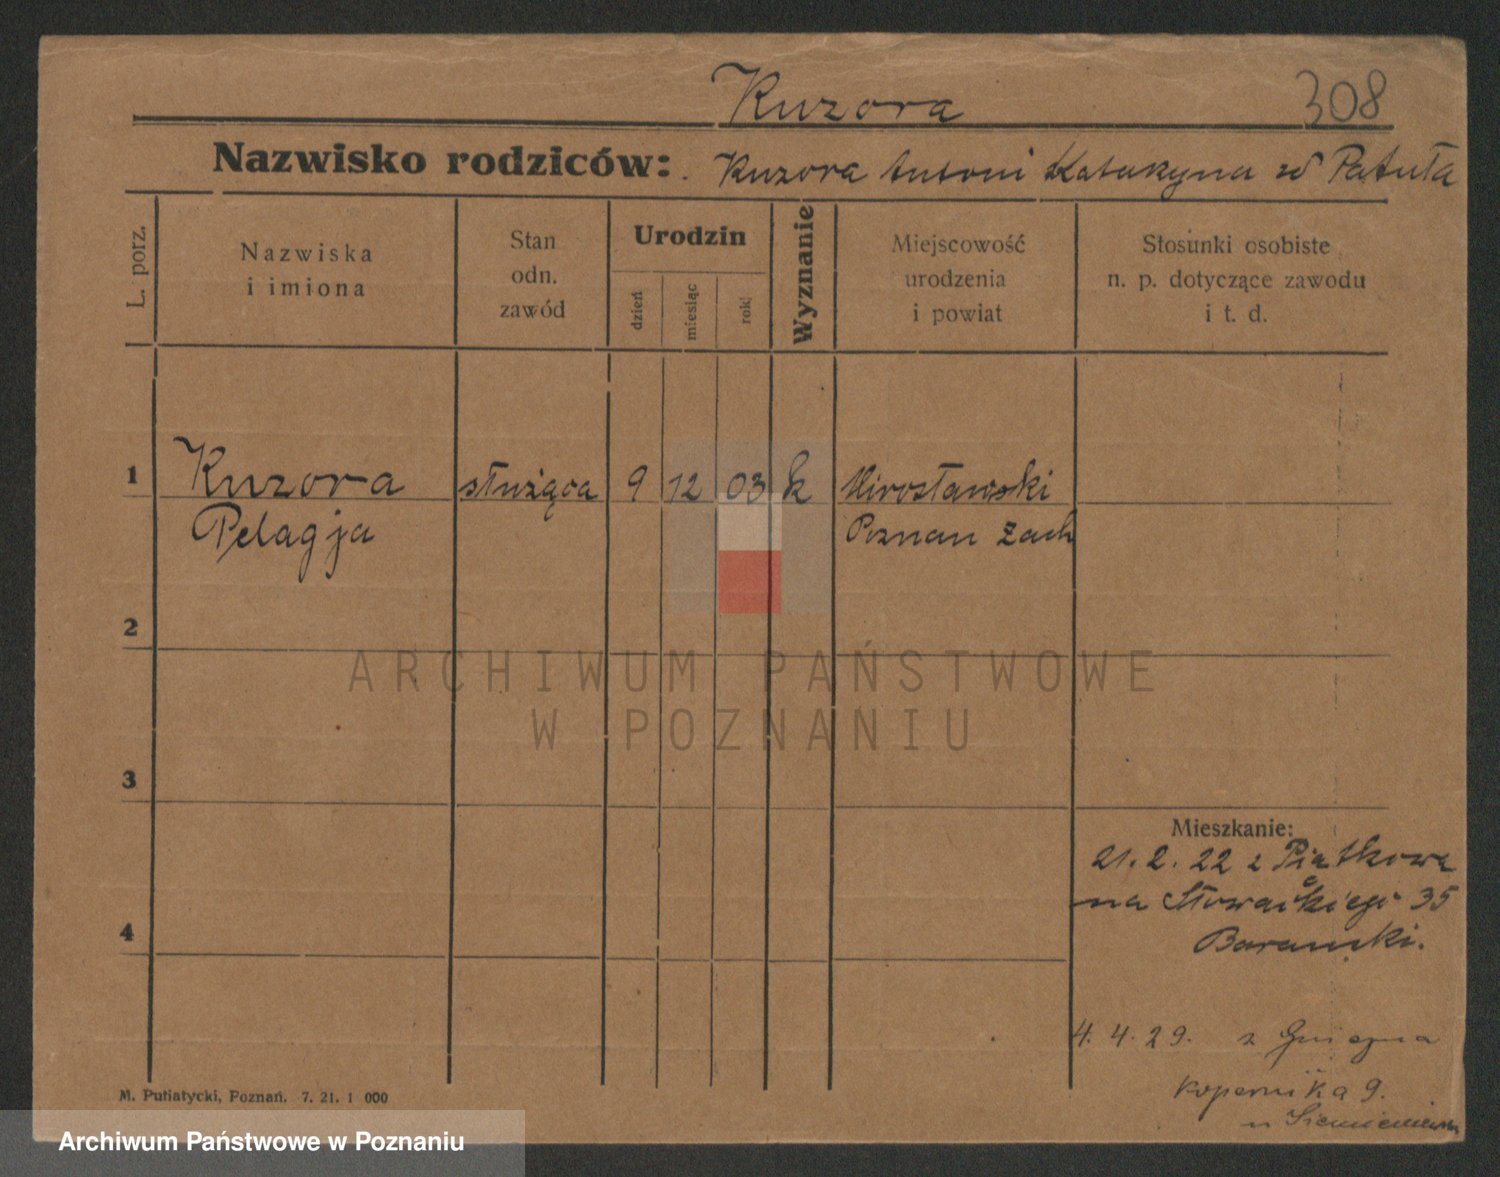 Kuzora 308
Nazwisko rodziców: Kuzora Antoni Katarzyna zd Patuła
L. porz.
Nazwiska
i imiona
Stan
odn.
zawód
Urodzin
dzień
miesiąc
rok
Wyznanie
Miejscowość
urodzenia
i powiat
Stosunki osobiste
n. p. dotyczące zawodu
i t. d.
1 Kuzora służąca 9 12 03 k Mirosławski
Pelagja Poznan Zach
2
ARCHIWUM PAŃSTWOWE
W POZNANIU
3
Mieszkanie:
21. 2. 22 z Piątkowa
na Słowackiego 35
4
Baranski.
4. 4. 29. z Gniezna
Kopernika 9.
u
M. Putiatycki, Poznań. 7. 21. 1 000
Archiwum Państwowe w Poznaniu